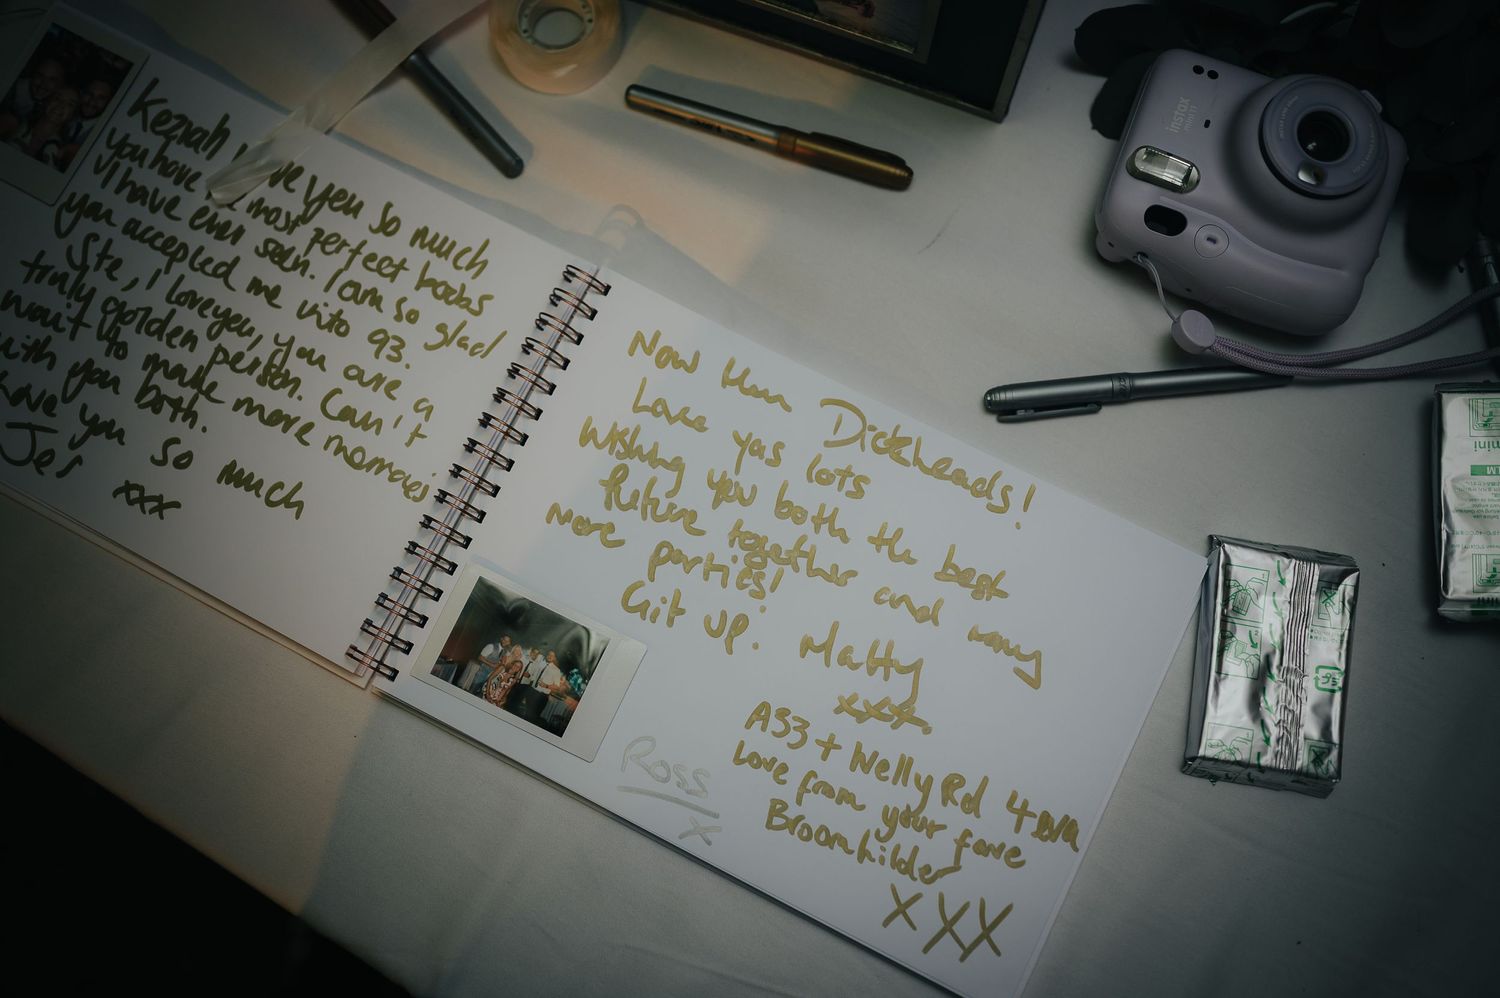 Keziah I love you so much
you have the most perfect boobs
I have ever seen. I am so glad
you accepted me into 93.
Ste, I love you, you are a
truly golden person. Can't
wait to make more memories
with you both.
Love you so much
Jes
xxx
Now then Dickheads!
Love yas lots
Wishing you both the best
future together and many
more parties!
Git up! Matty
xxx.
A53 + Welly Rd 4eva
Love from your fave
Broomhilder
XXX
Ross
x
instax
mini 11
mini